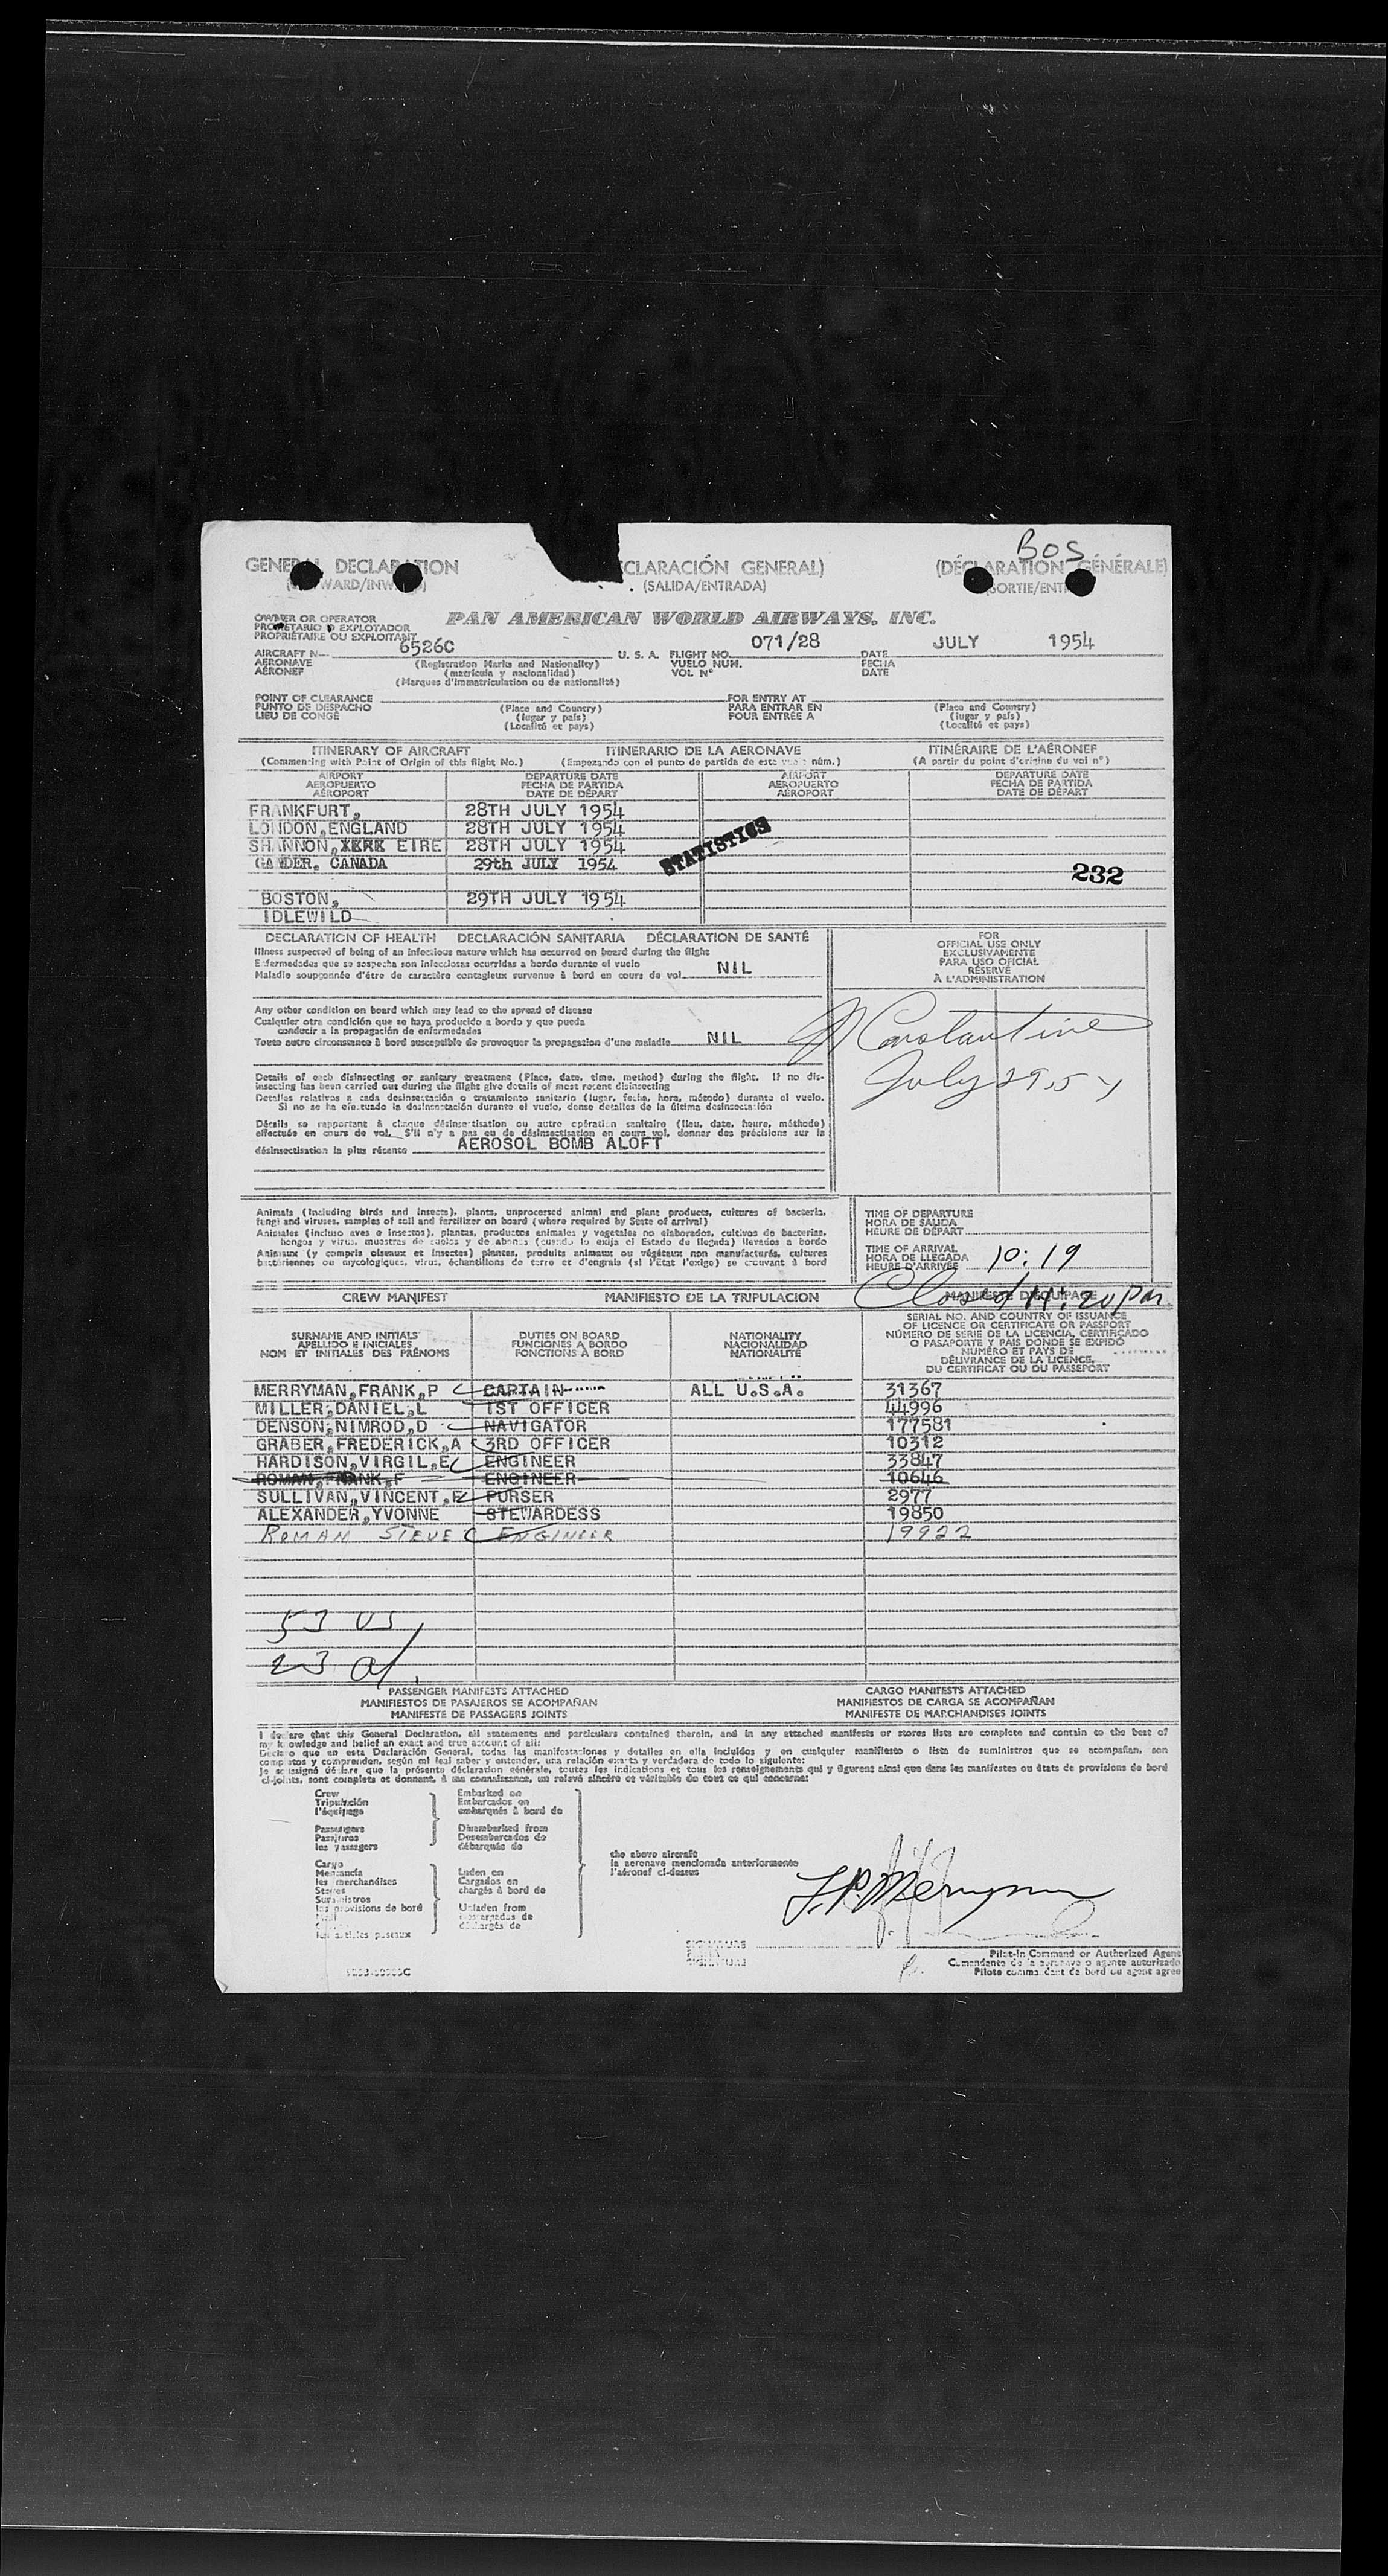 BOS
GENERAL DECLARATION (DECLARACIÓN GENERAL) (DÉCLARATION GÉNÉRALE)
(OUTWARD/INWARD) (SALIDA/ENTRADA) (SORTIE/ENTRÉE)
OWNER OR OPERATOR
PROPIETARIO O EXPLOTADOR
PROPRIÉTAIRE OU EXPLOITANT
PAN AMERICAN WORLD AIRWAYS, INC.
AIRCRAFT N— 6526C U. S. A. FLIGHT NO. 071/28 DATE JULY 1954
AERONAVE (Registration Marks and Nationality) VUELO NUM. FECHA
AÉRONEF (matricula y nacionalidad) VOL N° DATE
(Marques d'immatriculation ou de nationalité)
POINT OF CLEARANCE FOR ENTRY AT
PUNTO DE DESPACHO (Place and Country) PARA ENTRAR EN (Place and Country)
LIEU DE CONGÉ (lugar y país) POUR ENTRÉE A (lugar y país)
(Localité et pays) (Localité et pays)
ITINERARY OF AIRCRAFT ITINERARIO DE LA AERONAVE ITINÉRAIRE DE L'AÉRONEF
(Commencing with Point of Origin of this flight No.) (Empezando con el punto de partida de este vuelo núm.) (A partir du point d'origine du vol n°)
AIRPORT DEPARTURE DATE AIRPORT DEPARTURE DATE
AEROPUERTO FECHA DE PARTIDA AEROPUERTO FECHA DE PARTIDA
AÉROPORT DATE DE DÉPART AÉROPORT DATE DE DÉPART
FRANKFURT, 28TH JULY 1954
LONDON,ENGLAND 28TH JULY 1954
SHANNON, EIRE 28TH JULY 1954
STATISTICS
GANDER, CANADA 29th JULY 1954
232
BOSTON, 29TH JULY 1954
IDLEWILD
DECLARATION OF HEALTH DECLARACIÓN SANITARIA DÉCLARATION DE SANTÉ
Illness suspected of being of an infectious nature which has occurred on board during the flight
Enfermedades que se sospecha son infecciosas ocurridas a bordo durante el vuelo
Maladie soupçonnée d'être de caractère contagieux survenue à bord en cours de vol NIL
FOR
OFFICIAL USE ONLY
EXCLUSIVAMENTE
PARA USO OFICIAL
RÉSERVÉ
À L'ADMINISTRATION
Any other condition on board which may lead to the spread of disease
Cualquier otra condición que se haya producido a bordo y que pueda
conducir a la propagación de enfermedades
Toute autre circonstance à bord susceptible de provoquer la propagation d'une maladie NIL
Constantine
July 29, 54
Details of each disinsecting or sanitary treatment (Place, date, time, method) during the flight. If no dis-
insecting has been carried out during the flight give details of most recent disinsecting
Detalles relativos a cada desinsectación o tratamiento sanitario (lugar, fecha, hora, método) durante el vuelo.
Si no se ha efectuado la desinsectación durante el vuelo, dense detalles de la última desinsectación
Détails se rapportant à chaque désinsectisation ou autre opération sanitaire (lieu, date, heure, méthode)
effectuée en cours de vol. S'il n'y a pas eu de désinsectisation en cours vol, donner des précisions sur la
désinsectisation la plus récente AEROSOL BOMB ALOFT
Animals (including birds and insects), plants, unprocessed animal and plant products, cultures of bacteria,
fungi and viruses, samples of soil and fertilizer on board (where required by State of arrival)
Animales (incluso aves e insectos), plantas, productos animales y vegetales no elaborados, cultivos de bacterias,
hongos y virus, muestras de suelos y de abonos (cuando lo exija el Estado de llegada) llevados a bordo
Animaux (y compris oiseaux et insectes) plantes, produits animaux ou végétaux non manufacturés, cultures
bactériennes ou mycologiques, virus, échantillons de terre et d'engrais (si l'État l'exige) se trouvant à bord
TIME OF DEPARTURE
HORA DE SALIDA
HEURE DE DÉPART
TIME OF ARRIVAL
HORA DE LLEGADA 10:19
HEURE D'ARRIVÉE
CREW MANIFEST MANIFIESTO DE LA TRIPULACION MANIFESTE D'ÉQUIPAGE
Closed 11:20 pm
SURNAME AND INITIALS DUTIES ON BOARD NATIONALITY
APELLIDO E INICIALES FUNCIONES A BORDO NACIONALIDAD
NOM ET INITIALES DES PRÉNOMS FONCTIONS À BORD NATIONALITÉ
SERIAL NO. AND COUNTRY OF ISSUANCE
OF LICENCE OR CERTIFICATE OR PASSPORT
NÚMERO DE SERIE DE LA LICENCIA, CERTIFICADO
O PASAPORTE Y PAIS DONDE SE EXPIDÓ
NUMÉRO ET PAYS DE
DÉLIVRANCE DE LA LICENCE,
DU CERTIFICAT OU DU PASSEPORT
MERRYMAN,FRANK,P CAPTAIN ALL U.S.A. 31367
MILLER,DANIEL,L 1ST OFFICER 44996
DENSON,NIMROD,D NAVIGATOR 177581
GRABER,FREDERICK,A 3RD OFFICER 10312
HARDISON,VIRGIL,E ENGINEER 33847
ROMAN,FRANK,F ENGINEER 10646
SULLIVAN,VINCENT,E PURSER 2977
ALEXANDER,YVONNE STEWARDESS 19850
ROMAN STEVE ENGINEER 19922
53 US
23 a/
PASSENGER MANIFESTS ATTACHED CARGO MANIFESTS ATTACHED
MANIFIESTOS DE PASAJEROS SE ACOMPAÑAN MANIFIESTOS DE CARGA SE ACOMPAÑAN
MANIFESTE DE PASSAGERS JOINTS MANIFESTE DE MARCHANDISES JOINTS
I declare that this General Declaration, all statements and particulars contained therein, and in any attached manifests or stores lists are complete and contain to the best of
my knowledge and belief an exact and true account of all:
Declaro que en esta Declaración General, todas las manifestaciones y detalles en ella incluidos y en cualquier manifiesto o lista de suministros que se acompañan, son
completos y comprenden, según mi leal saber y entender, una relación exacta y verdadera de todo lo siguiente:
Je soussigné déclare que la présente déclaration générale, toutes les indications et tous les renseignements qui y figurent ainsi que dans les manifestes ou états de provisions de bord
ci-joints, sont complets et donnent, à ma connaissance, un relevé sincère et véritable de tout ce qui concerne:
Crew Embarked on
Tripulación Embarcados en
l'équipage embarqués à bord de
Passengers Disembarked from
Pasajeros Desembarcados de
les passagers débarqués de
the above aircraft
la aeronave mencionada anteriormente
l'aéronef ci-dessus
Cargo
Mercancía Laden on
les marchandises Cargados en
Stores chargés à bord de
Suministros
les provisions de bord Unladen from
Descargados de
déchargés de
les articles postaux
F. P. Merryman
SIGNATURE
FIRMA
SIGNATURE
Pilot-in Command or Authorized Agent
Comandante de la aeronave o agente autorizado
Pilote commandant de bord ou agent agréé